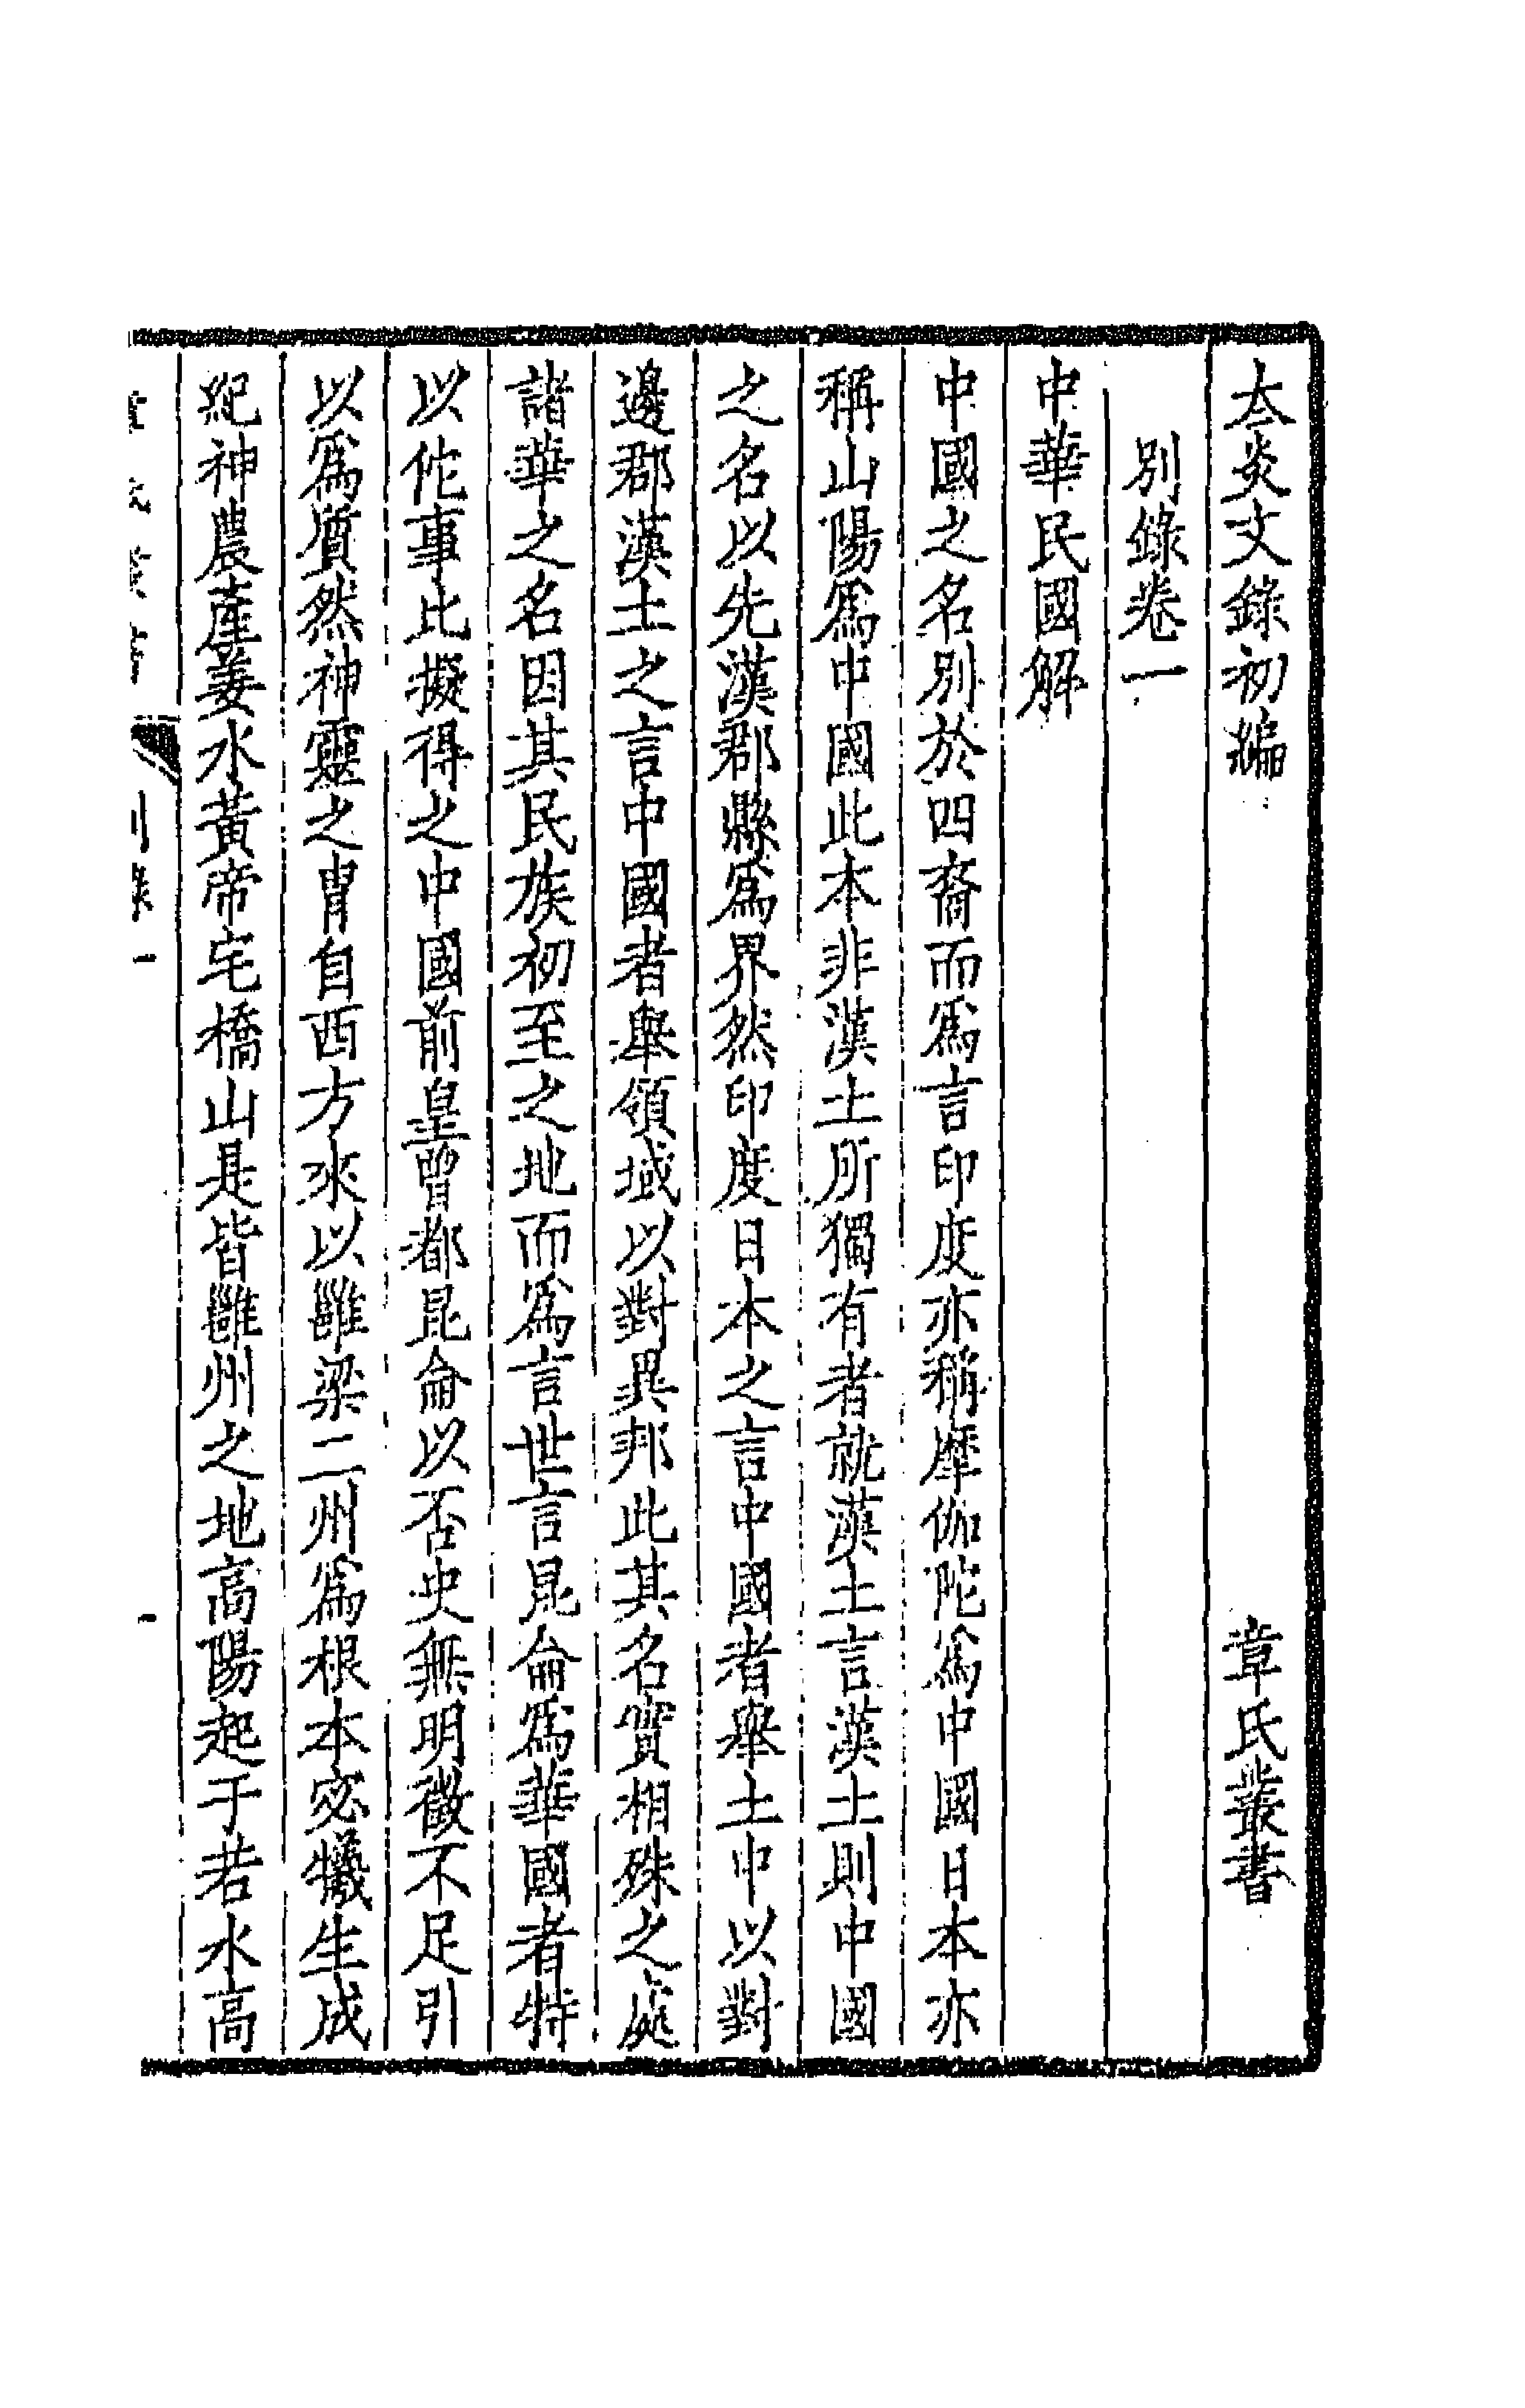 太炎文錄初編　章氏叢書
別錄卷一
中華民國解
中國之名別於四裔而爲言印度亦稱摩伽陀爲中國日本亦
稱山陽爲中國此本非漢土所獨有者就漢土言漢土則中國
之名以先漢郡縣爲界然印度日本之言中國者舉土中以對
邊郡漢土之言中國者舉領域以對異邦此其名實相殊之處
諸華之名因其民族初至之地而爲言世言昆侖爲華國者特
以佗事比擬得之中國前皇曾都昆侖以否史無明徵不足引
以爲質然神靈之胄自西方來以雝梁二州爲根本宓犧生成
紀神農產姜水黃帝宅橋山是皆雝州之地高陽起于若水高